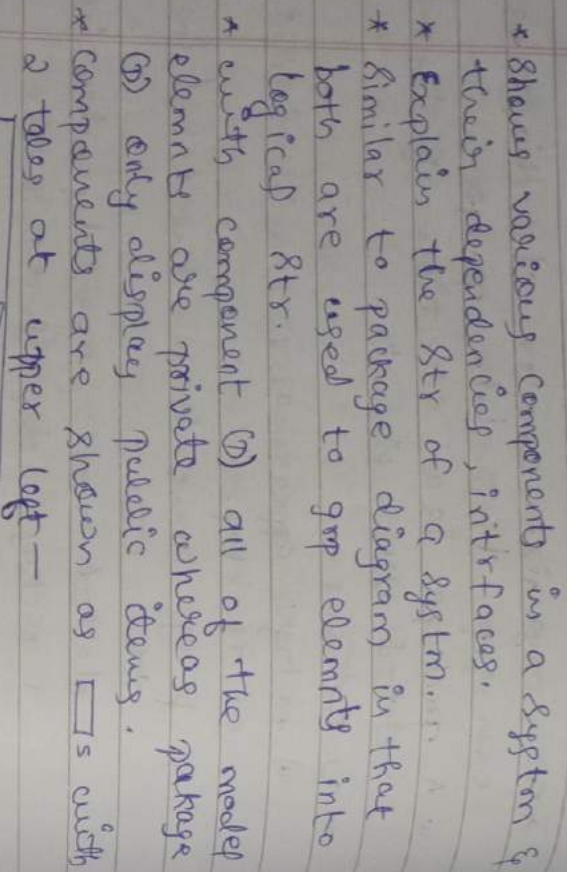 * Shows various components in a system &
their dependencies, intrfaces.
* Explain the Str of a systm.
* Similar to package diagram in that
both are used to grp elemnts into
logical Str.
* with component (D) all of the model
elemnts are private whereas pakage
(D) only display public items.
* Components are shown as □s with
2 tabs at upper left —